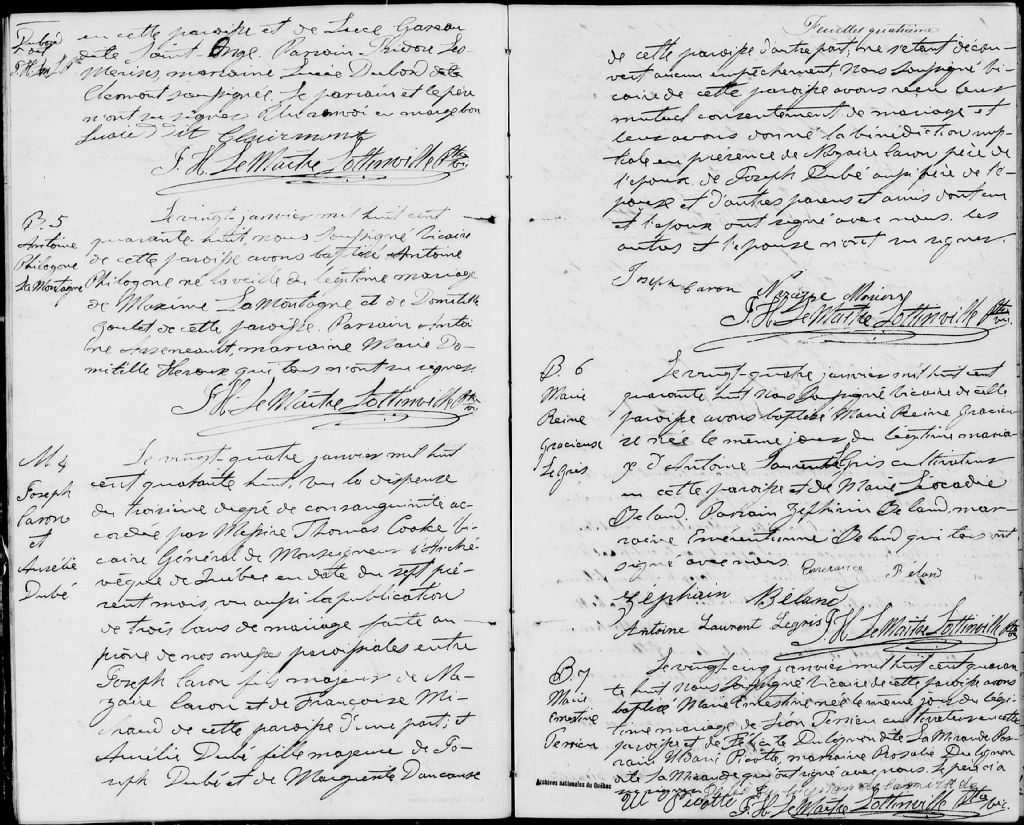 en cette paroisse et de Luce Gareau
dite Saint-Onge. Parrain Isidore Les
Merises, marraine Lucie Dubord dite
Clermont soussignée. Le parrain et le père
n'ont su signer. Un renvoi en marge bon
Lucie dit Clairmont
J. H. LeMaître Lottinville Ptre vic.
B. 5
Antoine
Philogone
LaMontagne
Le vingt janvier mil huit cent
quarante huit, nous soussigné vicaire
de cette paroisse avons baptisé Antoine
Philogone né la veille du légitime mariage
de Maxime LaMontagne et de Domitille
Goulet de cette paroisse. Parrain Antoi
ne Arseneault, marraine Marie Do-
mitille Heroux qui tous n'ont su signer
J. H. LeMaître Lottinville Ptre vic.
M. 4
Joseph
Caron
et
Aurélie
Dubé
Le vingt quatre janvier mil huit
cent quarante huit, vu la dispense
du troisième degré de consanguinité ac-
cordée par Messire Thomas Cooke Vi-
caire Général de Monseigneur l'Arche-
vêque de Québec en date du sept pré-
sent mois, vu aussi la publication
de trois bans de mariage faite au
prône de nos messes paroissiales entre
Joseph Caron fils majeur de Na-
zaire Caron et de Françoise Mi-
chaud de cette paroisse d'une part, et
Aurélie Dubé fille majeure de Jo-
seph Dubé et de Marguerite Dancause
Feuillet quatrième
de cette paroisse d'autre part, ne s'étant décou-
vert aucun empêchement, Nous soussigné vi-
caire de cette paroisse avons reçu leur
mutuel consentement de mariage et
leur avons donné la bénédiction nup
tiale en présence de Nazaire Caron père de
l'époux, de Joseph Dubé aussi père de l'é-
pouse et d'autres parens et amis dont un
et l'époux ont signé avec nous. Les
autres et l'épouse n'ont su signer.
Joseph Caron
J. H. LeMaître Lottinville Ptre vic.
B. 6
Marie
Reine
Gracieuse
LeGris
Le vingt quatre janvier mil huit cent
quarante huit Nous soussigné vicaire de cette
paroisse avons baptisé Marie Reine Gracieu
se née le même jour du légitime maria
ge d'Antoine Laurent LeGris cultivateur
en cette paroisse et de Marie Leocadie
Beland. Parrain Zephirin Beland, mar-
raine Emerentienne Beland qui tous ont
signé avec nous. Emerance Béland
Zephirin Beland
Antoine Laurent Legris J. H. LeMaître Lottinville Ptre vic.
B. 7
Marie
Ernestine
Terrien
Le vingt cinq janvier mil huit cent quaran
te huit Nous soussigné vicaire de cette paroisse avons
baptisé Marie Ernestine née le même jour du légi
time mariage de Léon Terrien cultivateur en cette
paroisse et de Félicité Dulignon dite LaMirande Par
rain Marie Picotte, marraine Rosalie Dulignon
dite LaMirande qui ont signé avec nous. Le père n'a
su signer
Picotte J. H. LeMaître Lottinville Ptre vic.
Archives nationales du Québec